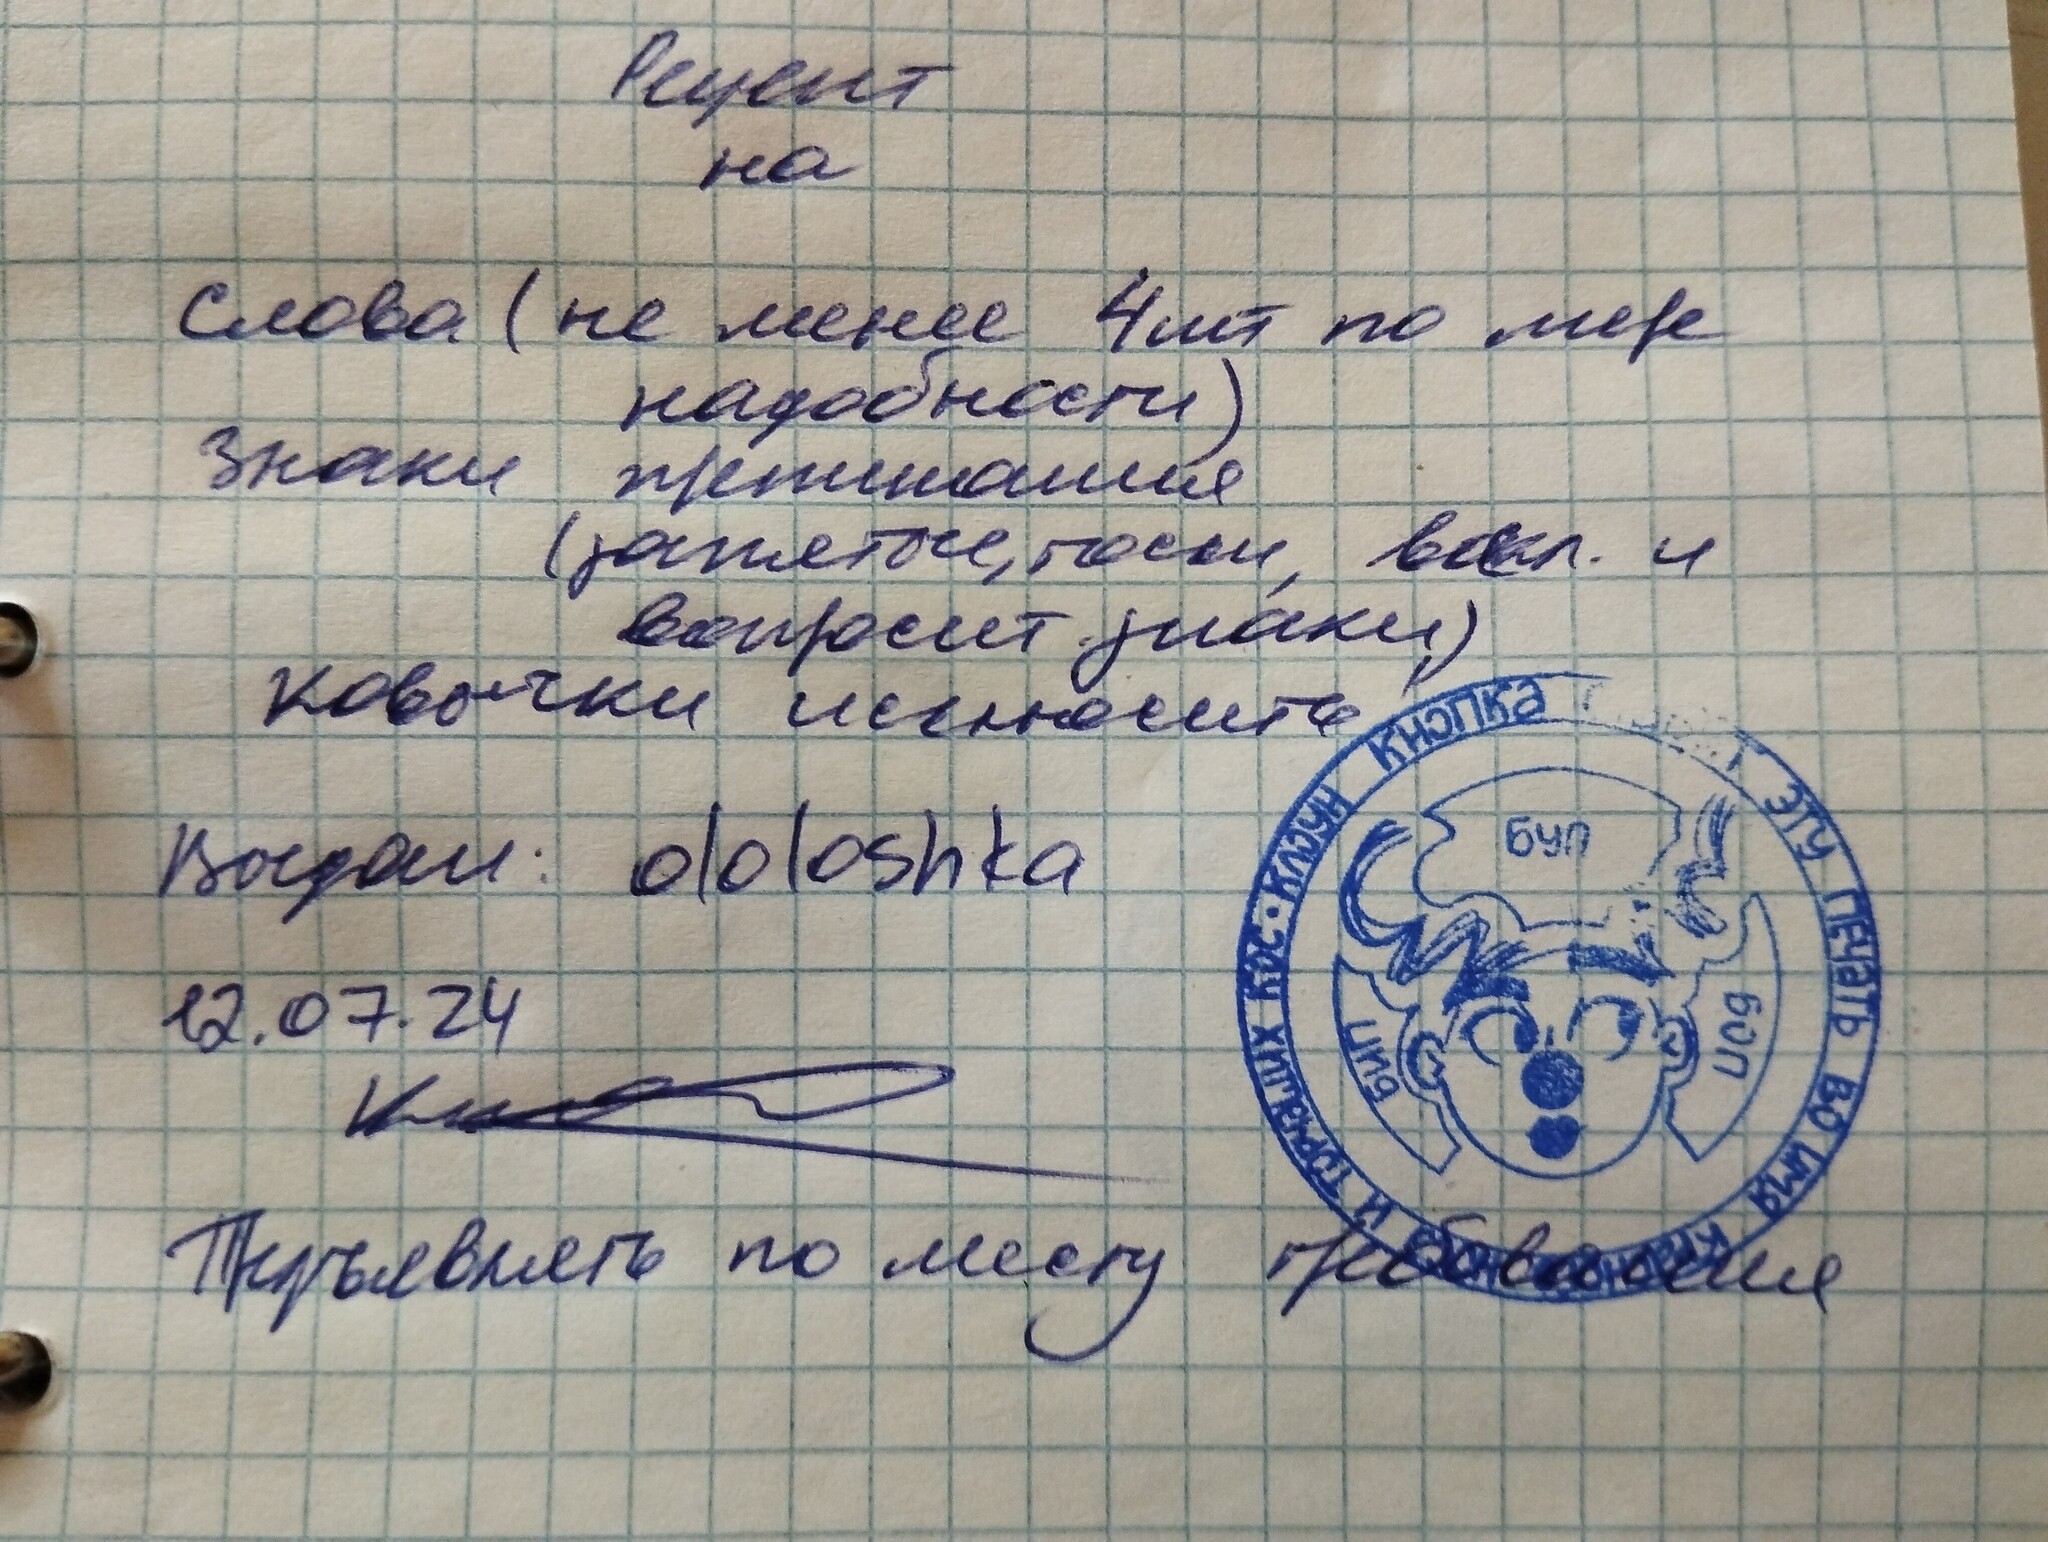 Рецепт
на
Слова (не менее 4 шт по мере
надобности)
Знаки препинания
(запятые, точки, воскл. и
вопросит. знаки,)
Ковычки исключить
Выдан: olololoshka
12.07.24
Предъявлять по месту требования
КЛОУН КНОПКА ЭТУ ПЕЧАТЬ ВО ИМЯ И ТОРЧАЩИХ КОС
БУП
БИП
БОП